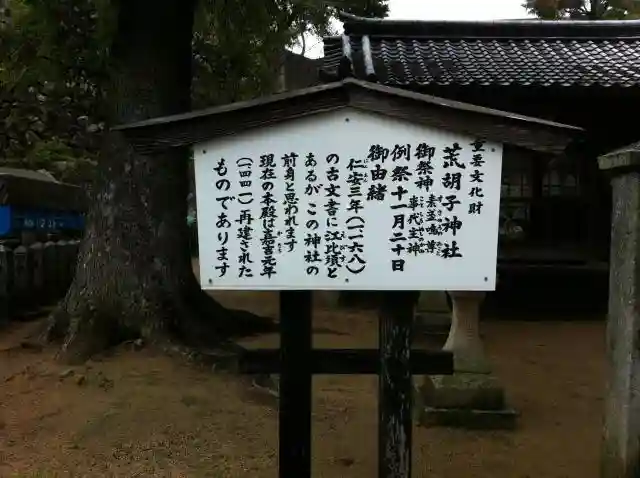 重要文化財
荒胡子神社
御祭神 素盞嗚尊
事代主神
例祭十一月二十日
御由緒
仁安三年(一一六八)
の古文書に江比須と
あるが この神社の
前身と思われます
現在の本殿は嘉吉元年
(一四四一)再建された
ものであります